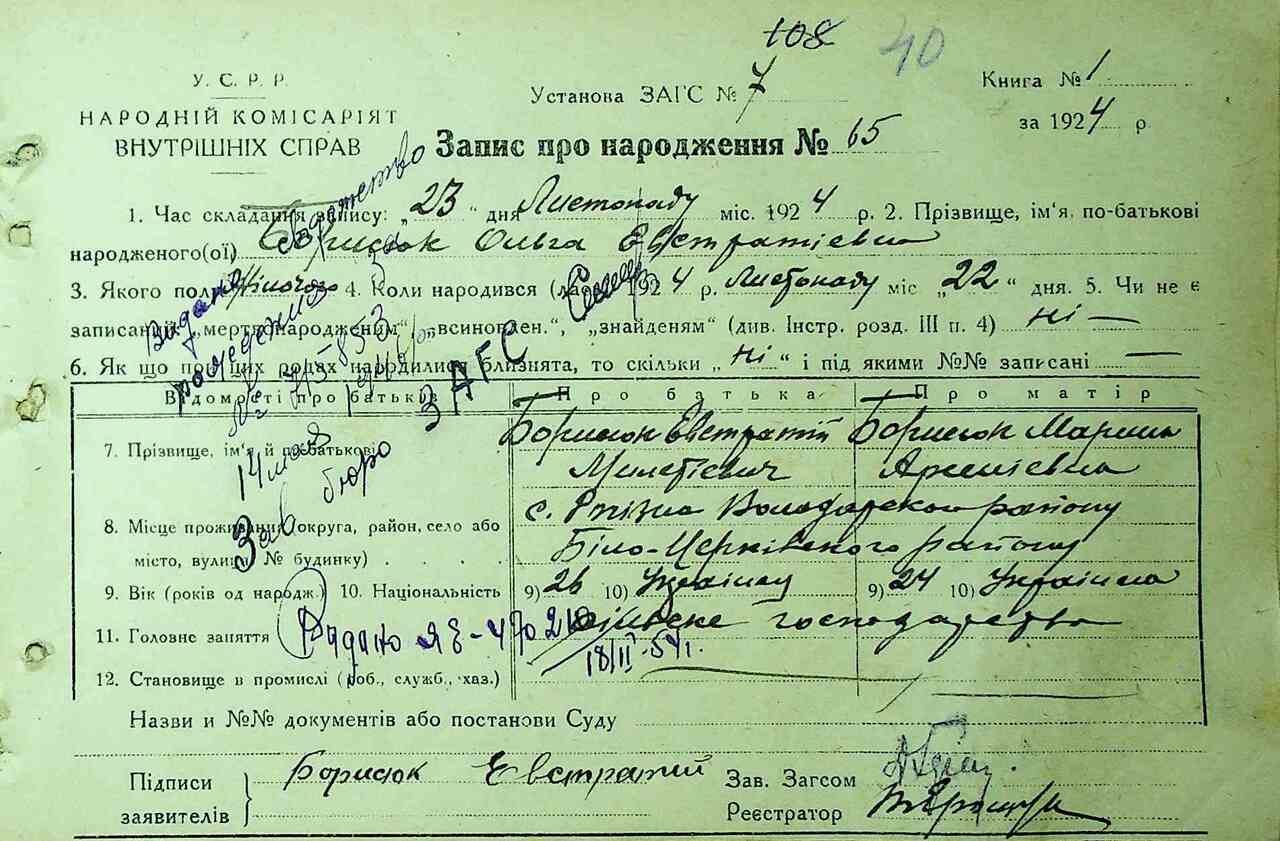 108 40
У. С. Р. Р.
НАРОДНІЙ КОМІСАРІЯТ
ВНУТРІШНІХ СПРАВ
Установа ЗАГС № 7
Книга № 1
за 1924 р.
Запис про народження № 65
1. Час складання запису: „23“ дня Листопаду міс. 1924 р. 2. Прізвище, ім'я, по-батькові
народженого(ої) Борисюк Ольга Евстратіевна
3. Якого полу Жіночого 4. Коли народився (лась) 1924 р. Листопаду міс „22“ дня. 5. Чи не є
записаний „мертвонародженим“, „всиновлен.“, „знайденям“ (див. Інстр. розд. III п. 4) ні —
6. Як що при цих родах народилися близнята, то скільки „ні“ і під якими №№ записані —
Відомості про батьків Про батька Про матір
7. Прізвище, ім'я й по-батькові Борисюк Евстратій Борисюк Марина
Милетієвич
8. Місце проживання (округа, район, село або с. Володарского району
місто, вулиця, № будинку) Біло-Церківского району
9. Вік (років од народж.) 10. Національність 9) 26 10) Українец 9) 24 10) Українка
11. Головне заняття сільске господарство
12. Становище в промислі (роб., служб., хаз.)
Назви и №№ документів або постанови Суду
Підписи заявителів Борисюк Евстратий
Зав. Загсом
Реєстратор
Видано
рождении
№ 853
14 мая
Зав бюро ЗАГС
Видано ЯЕ-470210
18/II-54г.